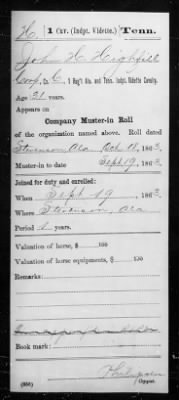 H. 1 Cav. (Indpt. Vidette.) Tenn.
John H. Highfill
Co. C, 1 Reg't Ala. and Tenn. Indpt. Vidette Cavalry.
Age 21 years.
Appears on
Company Muster-in Roll
of the organization named above. Roll dated
Stevenson, Ala. Oct 18, 1863.
Muster-in to date Sept 19, 1863.
Joined for duty and enrolled:
When Sept 19, 1863.
Where Stevenson, Ala
Period years.
Valuation of horse, $ 100
Valuation of horse equipments, $ 100
Remarks:
Book mark:
(356) Copyist.